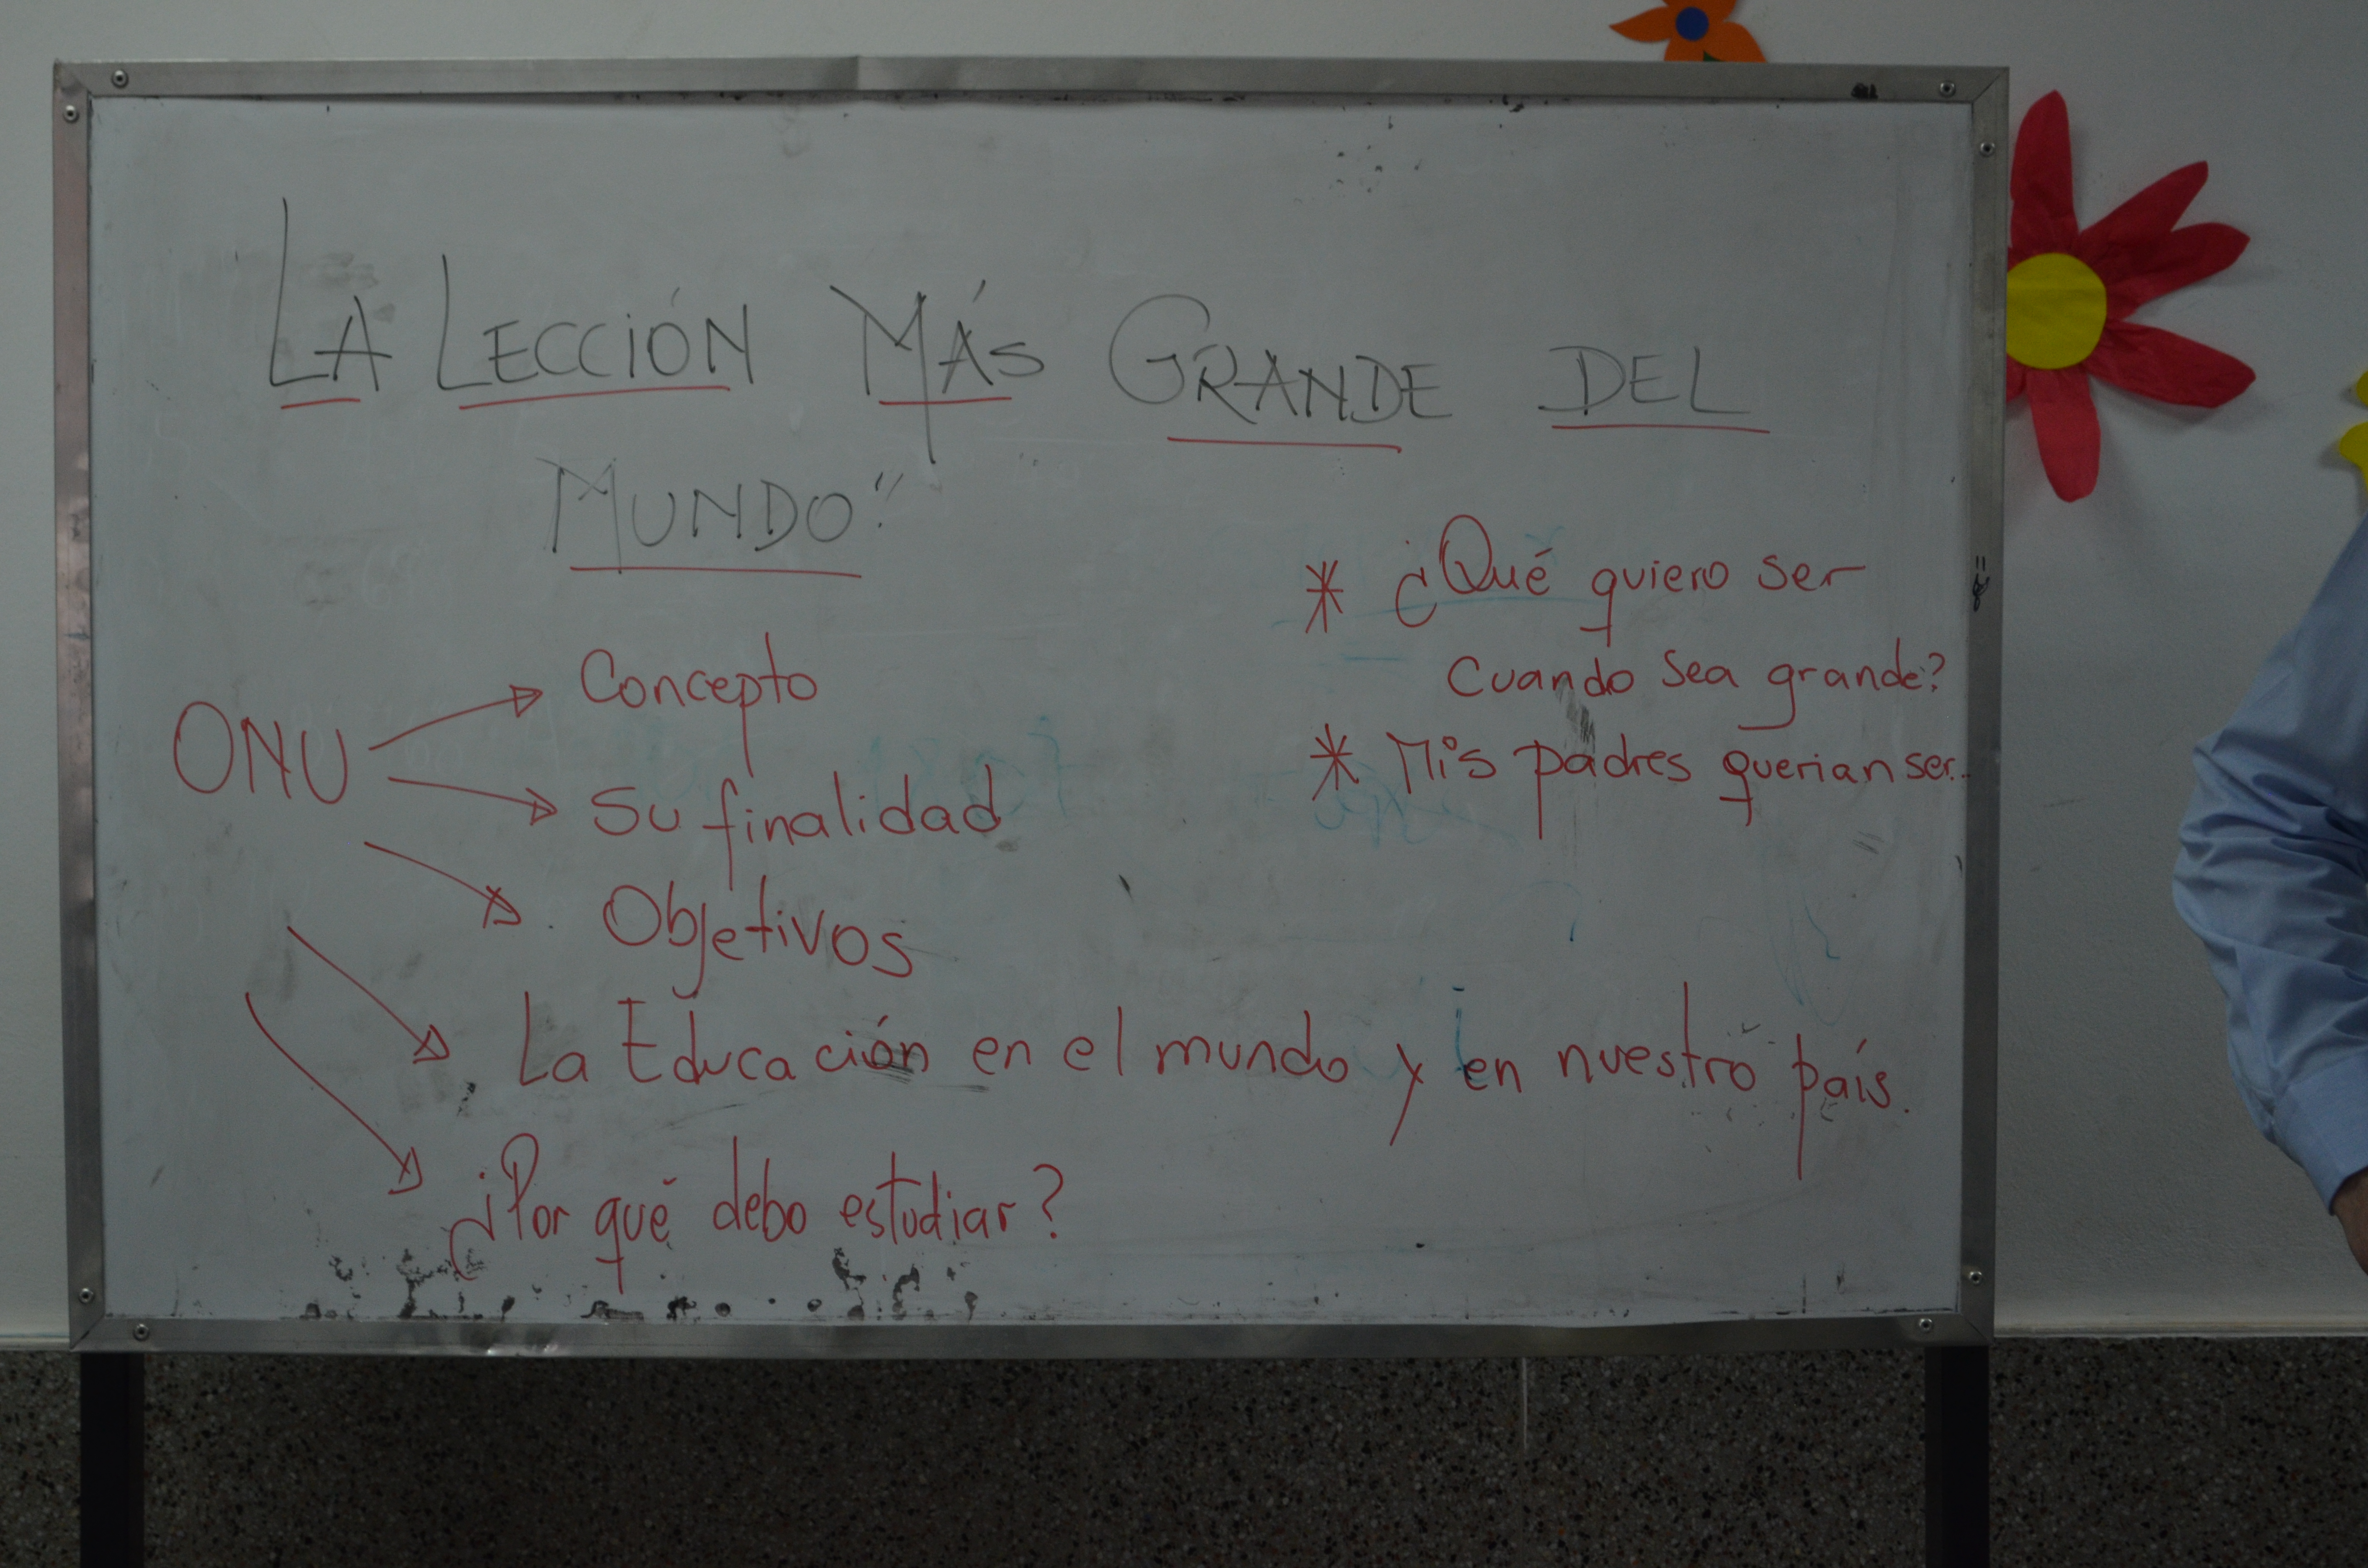 LA LECCIÓN MÁS GRANDE DEL
MUNDO"
ONU
Concepto
Su finalidad
Objetivos
La Educación en el mundo y en nuestro país.
¿Por qué debo estudiar?
* ¿Qué quiero ser
cuando sea grande?
* Mis padres querian ser...